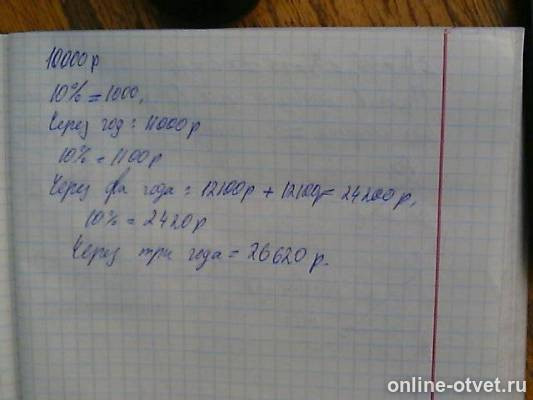 10000р
10% = 1000,
Через год = 11000р
10% = 1100р
Через два года = 12100р + 12100р = 24200р,
10% = 2420р
Через три года = 26620р.
online-otvet.ru